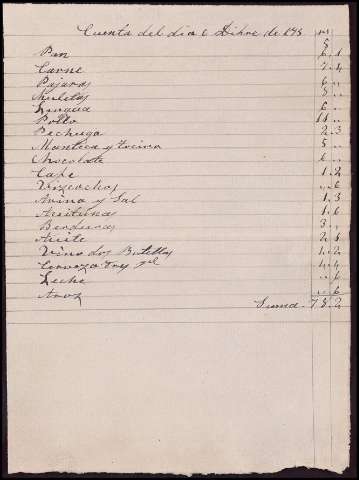 Cuenta del dia 6 Dibre de 893 rs
5
Pan 6.1
Carne 7.4
Pajaros 6 "
Muletas 5 "
Linaua 6 "
Pollo 11 "
Pechuga 2.3
Manteca y tocino 5 "
Chocolate 6 "
Cafe 1.2
Viscochos " 6
Arina y Sal 1.3
Aseitunas 1.6
Berduras 3 "
Aseite 2.1
Vino dos Botellas 1.2
Cerveza tres 4.4
Leche " 6
Aroz " 6
Suma 78.2